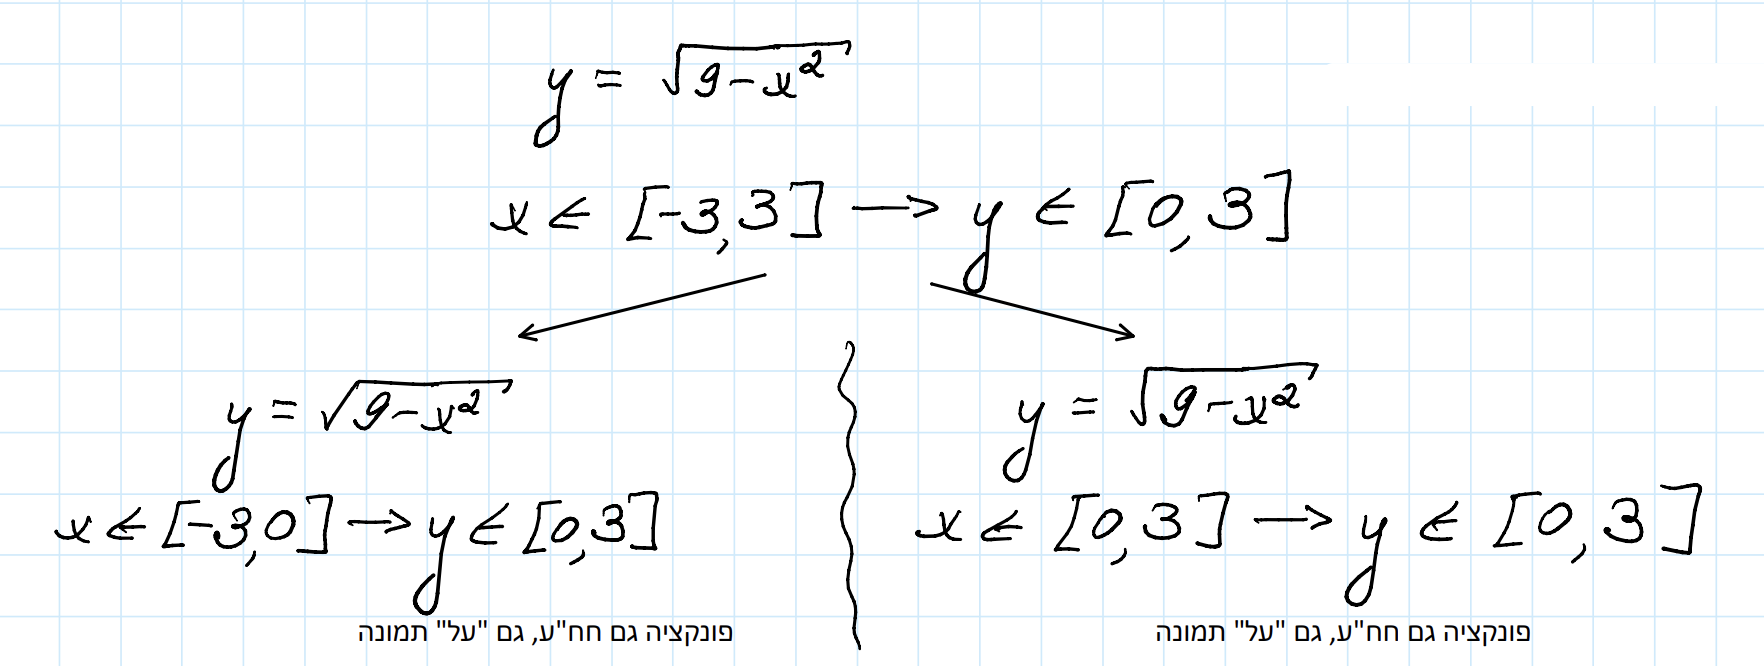 y = √(9-x²)
x ∈ [-3,3] → y ∈ [0,3]
y = √(9-x²)
x ∈ [-3,0] → y ∈ [0,3]
פונקציה גם חח"ע, גם "על" תמונה
y = √(9-x²)
x ∈ [0,3] → y ∈ [0,3]
פונקציה גם חח"ע, גם "על" תמונה